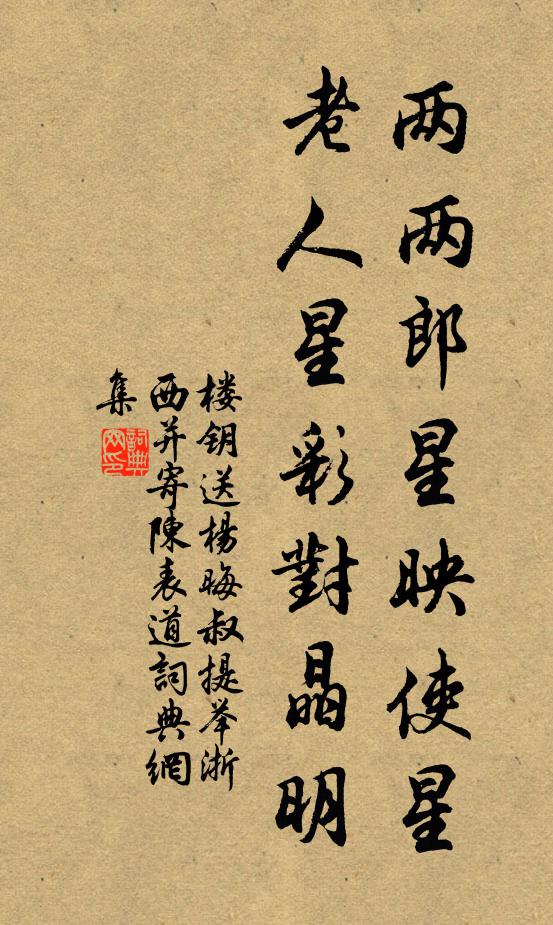 两两郎星映使星
老人星彩對晶明
楼钥送楊晦叔提举浙
西并寄陳表道詞典網
集
詞典网印